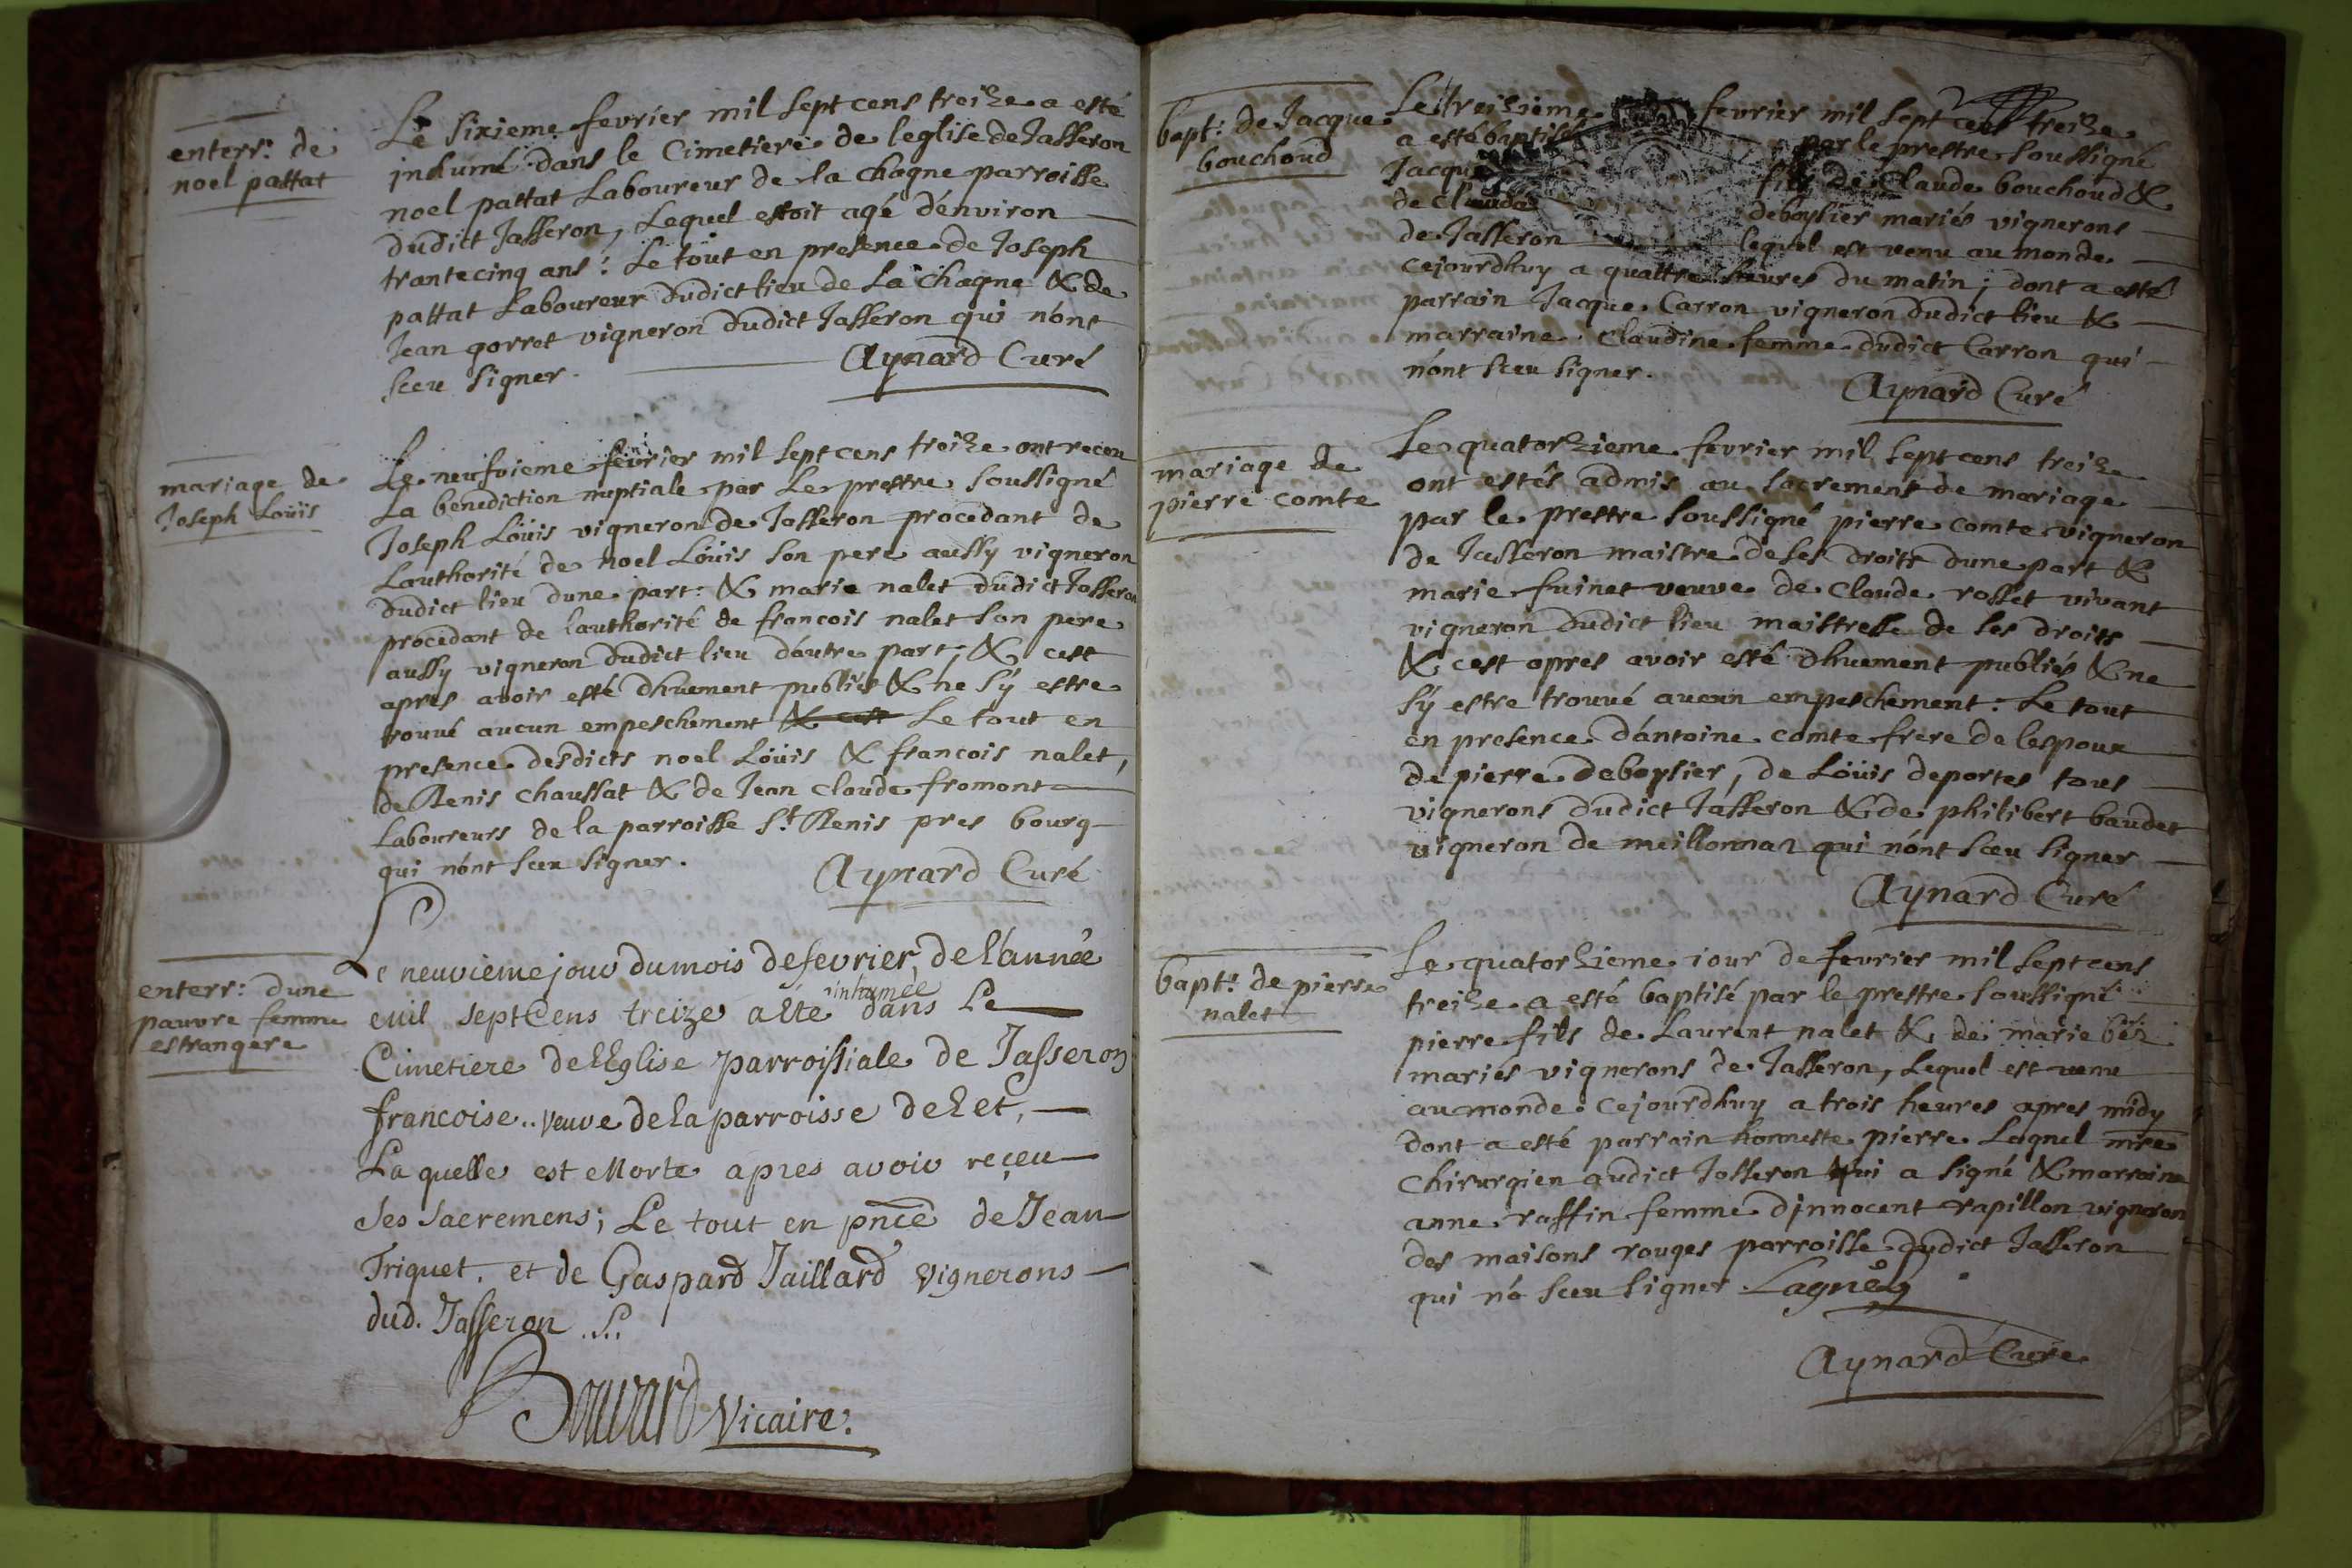 enterr: de
noel pattat
Le sixieme fevrier mil sept cens treize a esté
inhumé dans le Cimetiere de leglise de Jasseron
noel pattat Laboureur de la chagne parroisse
dudict Jasseron, Lequel estoit agé d'environ
trante cinq ans: Le tout en presence de Joseph
pattat Laboureur dudict lieu de La chagne & de
Jean gorret vigneron dudict Jasseron qui n'ont
sceu signer.
Aynard Curé
mariage de
Joseph Loüis
Le neufvieme fevrier mil sept cens treize ont receu
La benediction nuptiale par Le prestre soussigné
Joseph Loüis vigneron de Jasseron procedant de
Lauthorité de noel Loüis son pere aussy vigneron
dudict lieu dune part: & marie nalet dudict Jasseron
procedant de lauthorité de francois nalet son pere
aussy vigneron dudict lieu d'autre part; & cest
apres avoir esté dhuement publiés & ne s'y estre
trouvé aucun empeschement & cest Le tout en
presence desdicts noel Loüis & francois nalet,
de Renis chaussat & de Jean claude fromont
Laboureurs de la parroisse St Renis pres bourg
qui n'ont sceu signer.
Aynard Curé
enterr: dune
pauvre femme
estrangere
Le neuvieme jour du mois de fevrier, de l'année
mil sept Cens treize a été inhumée dans Le
Cimetiere de l'Eglise parroissiale de Jasseron
francoise.. veuve de la parroisse de Let,
Laquelle est Morte apres avoir reçeu
ses sacremens; Le tout en pnce de Jean
Triquet. et de Gaspard Jaillard vignerons
dud. Jasseron
Bouvard Vicaire.
bapt: de Jacque
bouchoud
Le treizieme fevrier mil sept cens treize
a esté baptisé par le prestre soussigné
Jacque fils de Claude bouchoud &
de Clauda deboysier mariés vignerons
de Jasseron lequel est venu au monde
cejourdhuy a quattre heures du matin; dont a esté
parrain Jacque Carron vigneron dudict lieu &
marraine Claudine femme dudict Carron qui
n'ont sceu signer.
Aynard Curé
mariage de
pierre comte
Le quatorzieme fevrier mil sept cens treize
ont estés admis au sacrement de mariage
par le prestre soussigné pierre comte vigneron
de Jasseron maistre de ses droits dune part &
marie fuinet veuve de claude rosset vivant
vigneron dudict lieu maistresse de ses droits
& cest apres avoir esté dhuement publiés & ne
s'y estre trouvé aucun empeschement: Le tout
en presence d'antoine comte frere de lespoux
de pierre deboysier, de Loüis deportes tous
vignerons dudict Jasseron & de philibert baudet
vigneron de meillonnaz qui n'ont sceu signer
Aynard Curé
bapt: de pierre
nalet
Le quatorzieme iour de fevrier mil sept cens
treize a esté baptisé par le prestre soussigné
pierre fils de Laurent nalet & de marie
mariés vignerons de Jasseron, Lequel est venu
au monde cejourdhuy a trois heures apres midy
dont a esté parrain honneste pierre Lagnel mre
chirurgien audict Jasseron qui a signé & marraine
anne raffin femme d'innocent rapillon vigneron
des maisons rouges parroisse dudict Jasseron
qui n'a sceu signer Lagnel
Aynard Curé